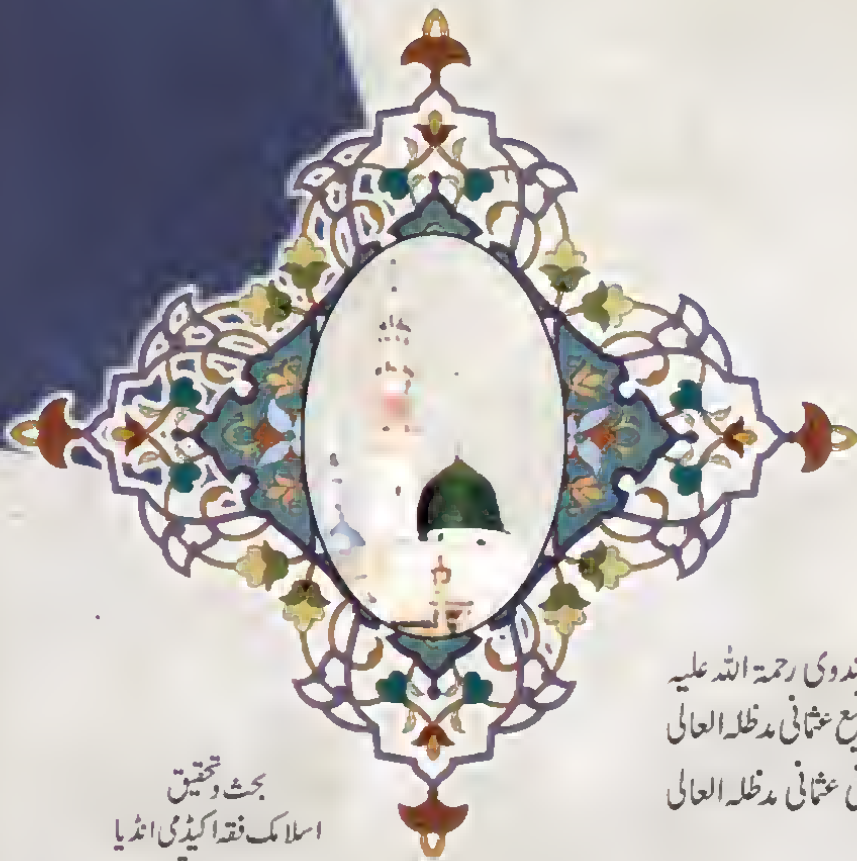 ندوی رحمۃ اللہ علیہ
یع عثمانی مدظلہ العالی
ی عثمانی مدظلہ العالی
بحث و تحقیق
اسلامک فقہ اکیڈمی انڈیا